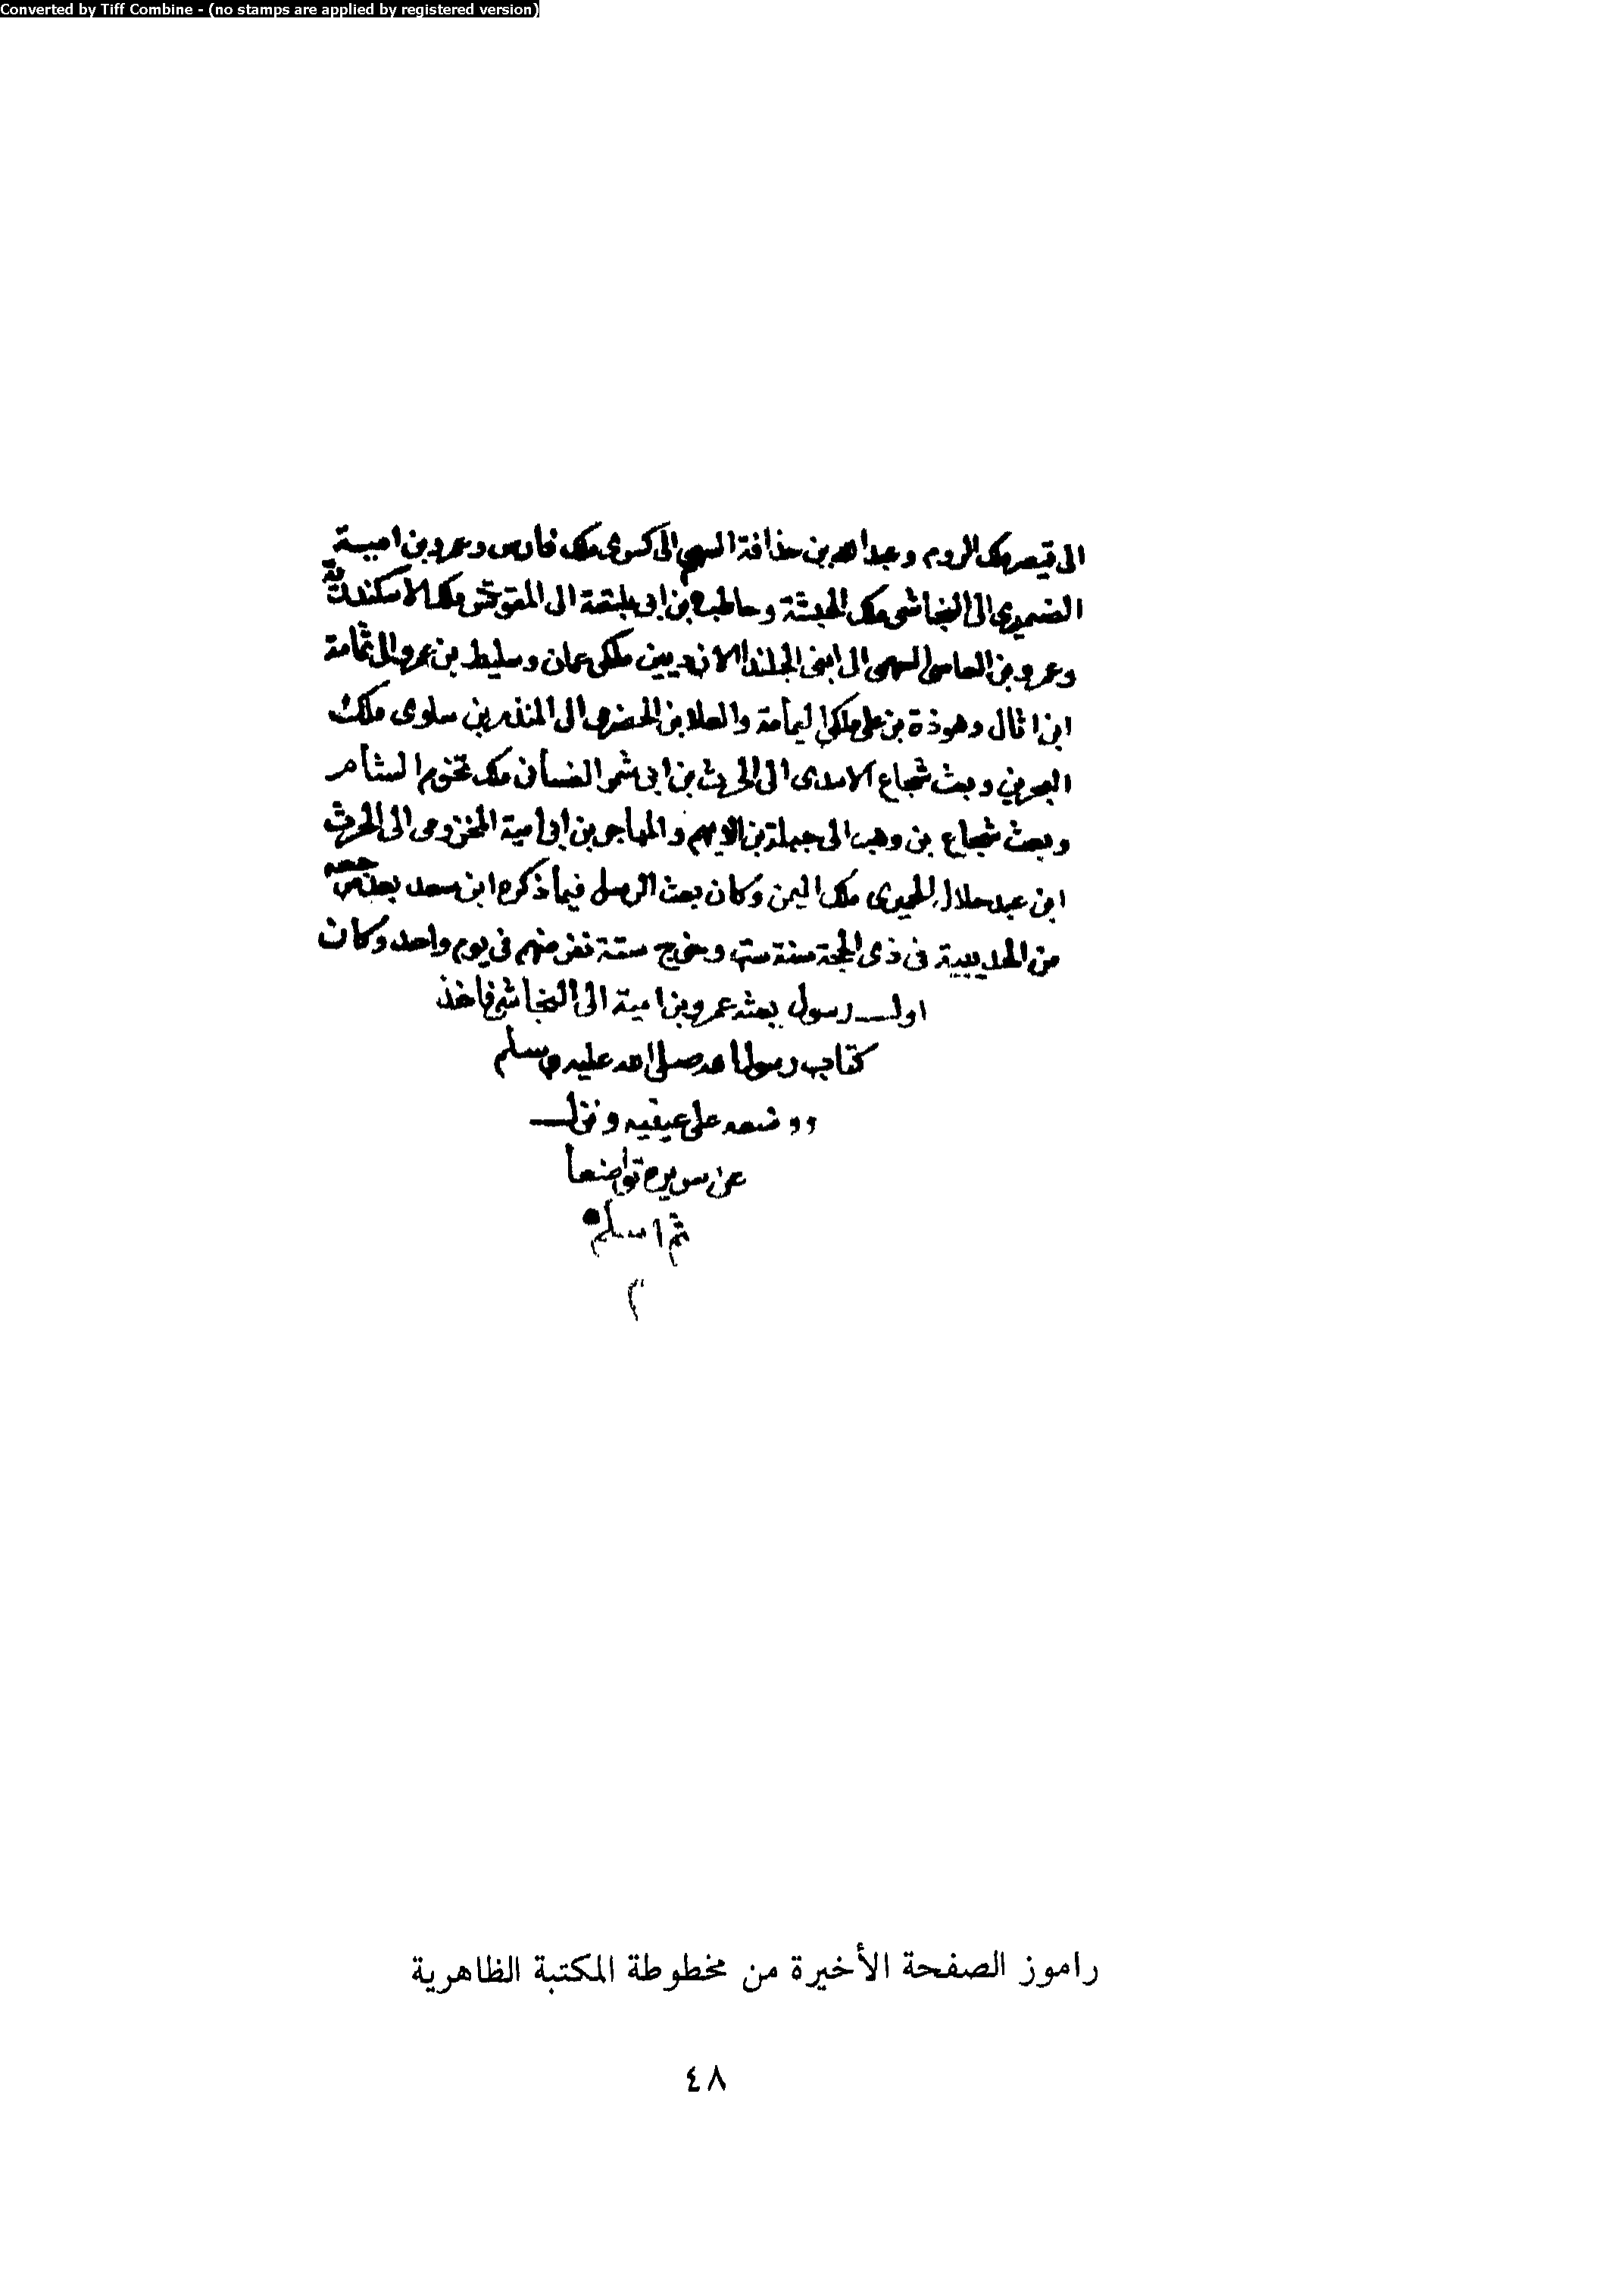 Converted by Tiff Combine - (no stamps are applied by registered version)
الى قيصر ملك الروم وعبد الله بن حذافة السهمي الى كسرى ملك فارس وعمرو بن امية
الضميرى الى النجاشي ملك الحبشة وحاطب بن ابي بلتعة الى المقوقس ملك الاسكندرية
وعمرو بن العاص السهمى الى ابني الجلندا الازديين ملكى عمان وسليط بن عمرو الى ثمامة
ابن اثال وهوذة بن على ملكي اليمامة والعلا بن الحضرمى الى المنذر بن ساوى ملك
البحرين وبعث شجاع الاسدى الى الحرث بن ابي شمر الغسان ملك تخوم الشام
وبعث شجاع بن وهب الى جبلة بن الايهم والمهاجر بن ابي امية المخزومى الى الحرث
ابن عبد كلال الحميرى ملك اليمن وكان بعث الرسل فيما ذكره ابن سعد بعد
من الحديبية في ذى الحجة سنة ست وخرج ستة نفر منهم في يوم واحد وكان
اول رسول بعثه عمرو بن امية الى النجاشي فاخذ
كتاب رسول الله صلى الله عليه وسلم
ووضعه على عينيه ونزل
عن سريره تواضعا
ثم اسلم
راموز الصفحة الأخيرة من مخطوطة المكتبة الظاهرية
٤٨